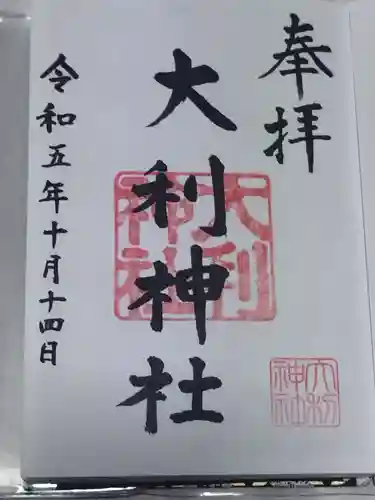 奉拝
大利神社
大利
神社
大利
神社
令和五年十月十四日